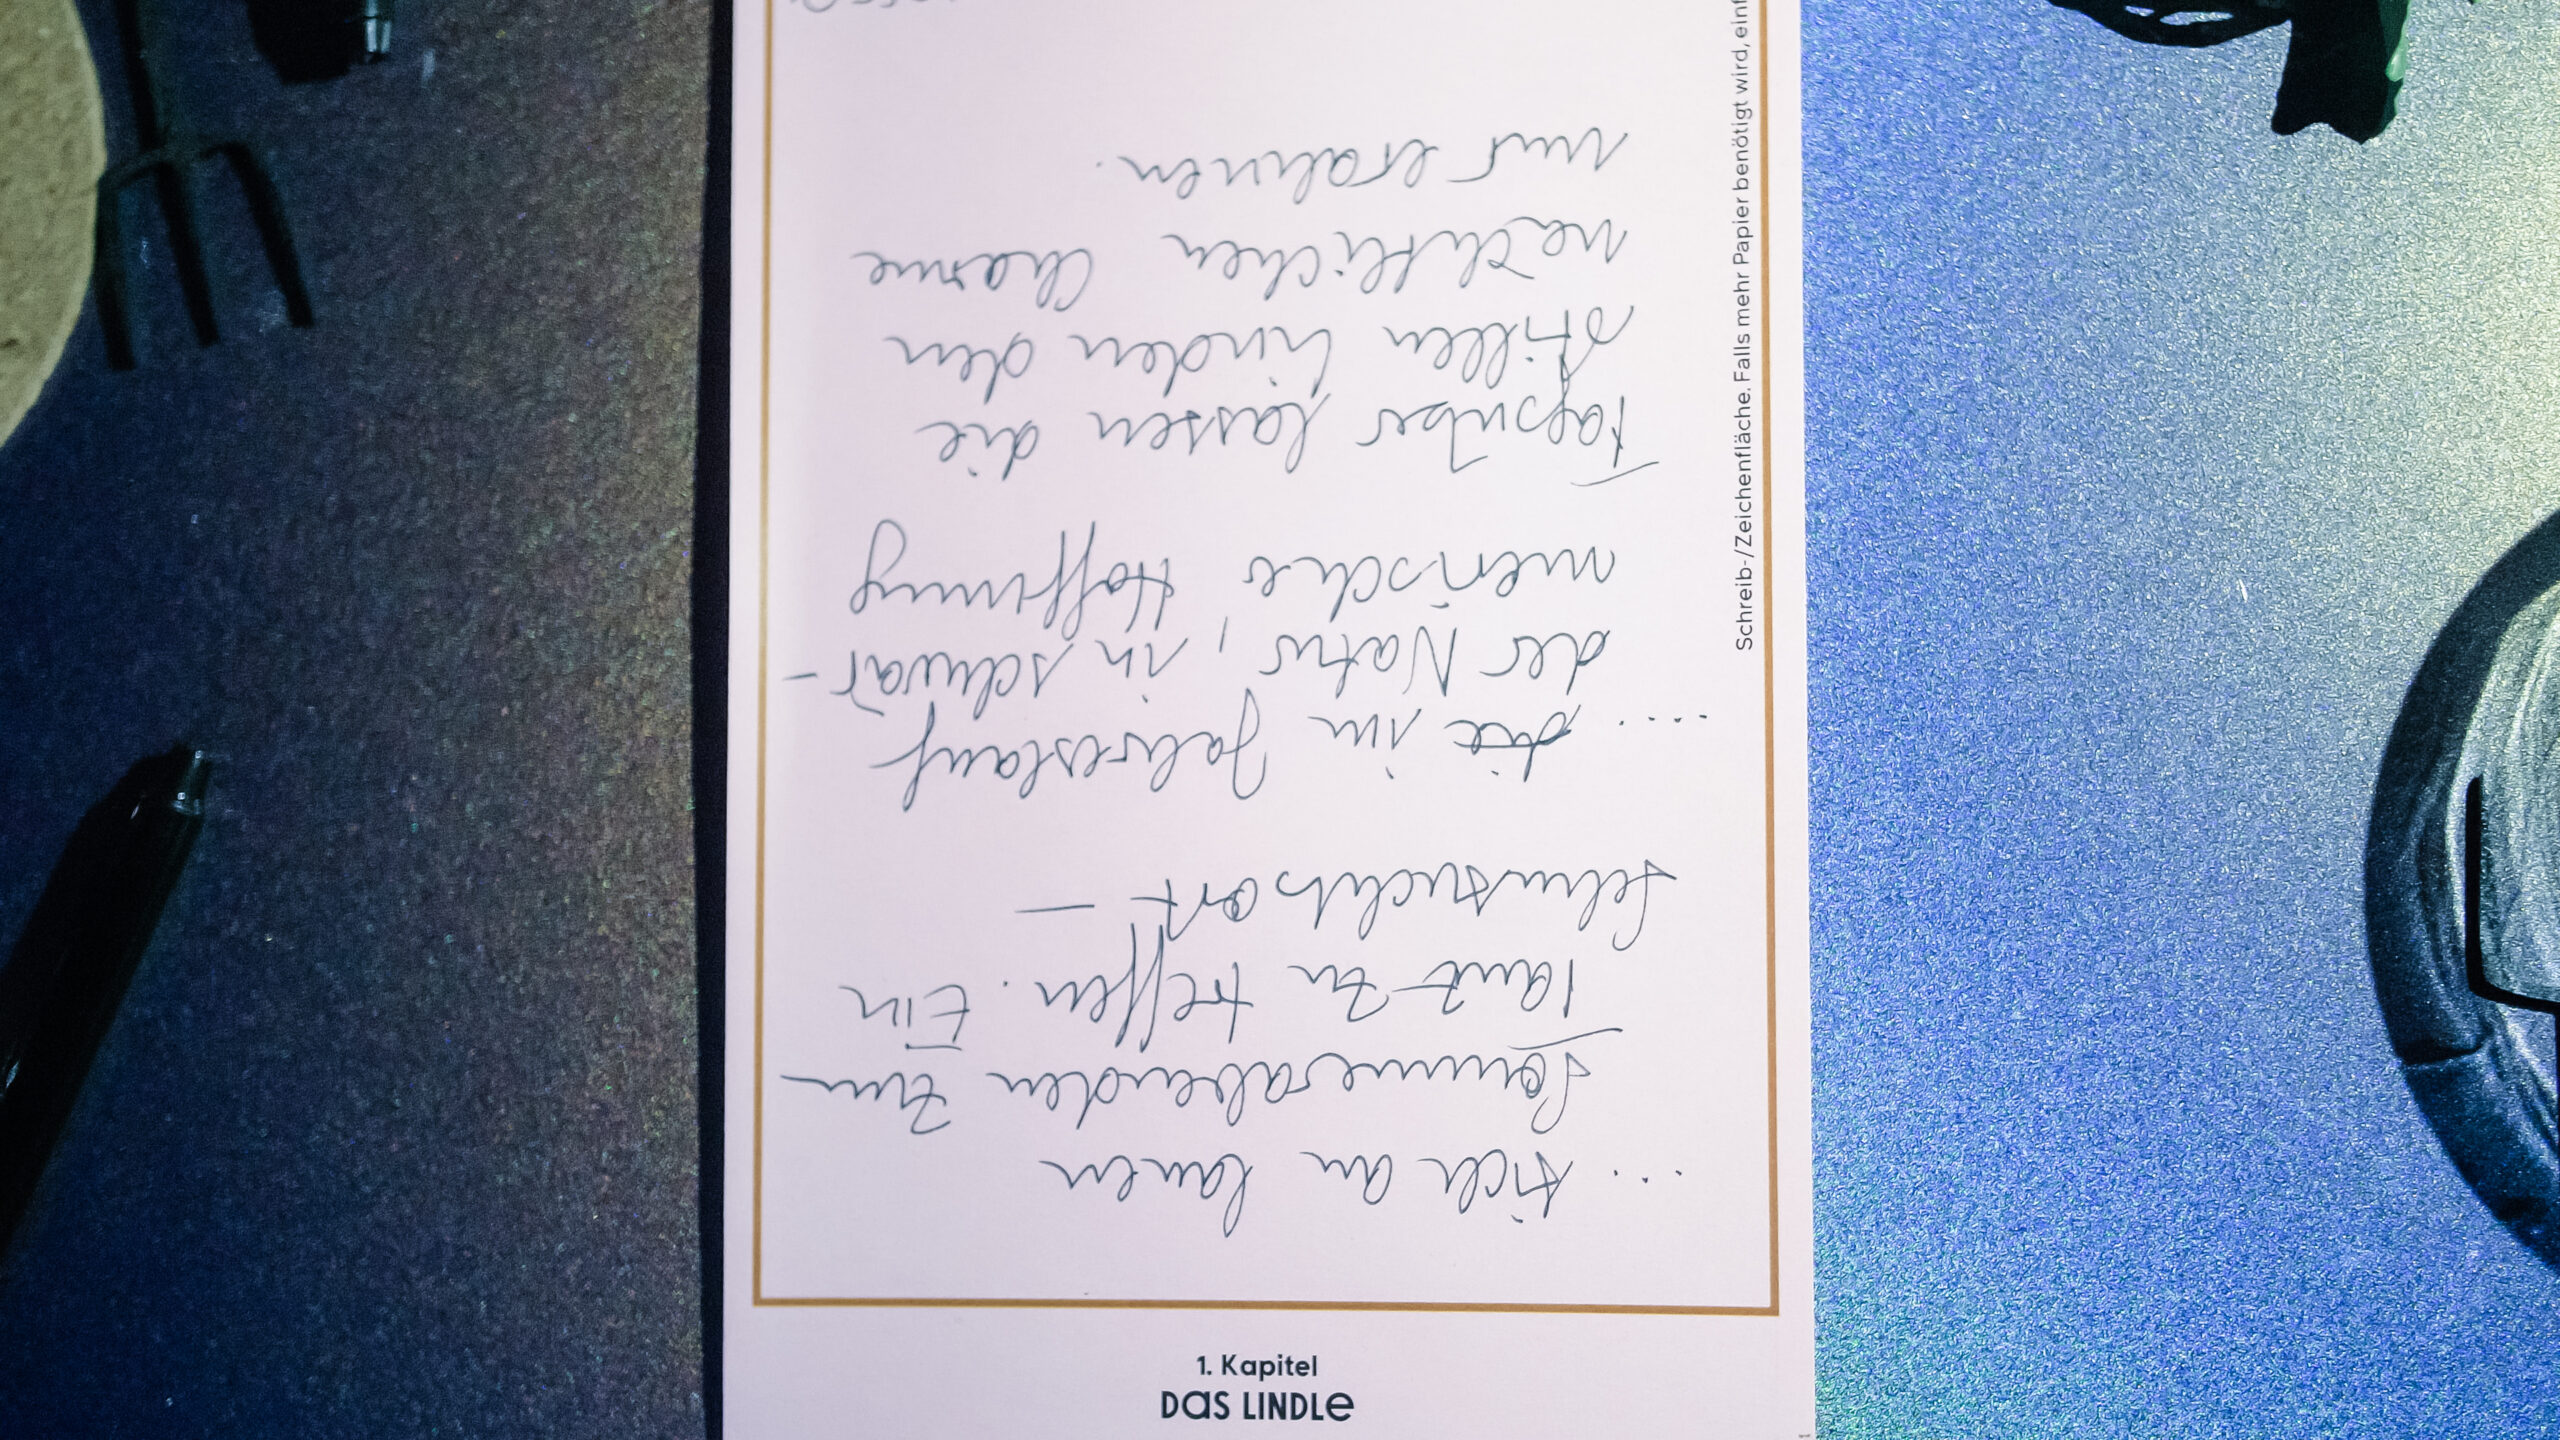 ... sich an lauen
Sommerabenden zum
Tanz zu treffen. Ein
Sehnsuchtsort –
... die im Jahreslauf
der Natur, in schwär-
merischer Hoffnung
Tagsüber lassen die
stillen Linden den
nächtlichen Charme
nur erahnen.
Schreib-/Zeichenfläche. Falls mehr Papier benötigt wird,
1. Kapitel
Das Lindle